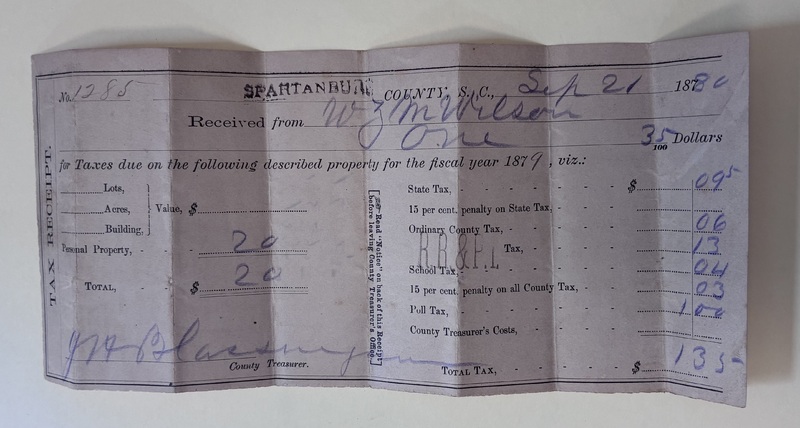 TAX RECEIPT.
No. 1285 SPARTANBURG COUNTY, S. C., Sep 21 1880
Received from W Z M Wilson
One 35/100 Dollars
for Taxes due on the following described property for the fiscal year 1879, viz.:
Lots,
Acres,
Building,
Value, $
Personal Property, - - 20
TOTAL, - - $ 20
County Treasurer.
☞ Read "Notice" on back of this Receipt
before leaving County Treasurer's Office.
State Tax, - - - - - - $ 09 5
15 per cent. penalty on State Tax, - - -
Ordinary County Tax, - - - - 06
R.R. & P.I. Tax, - - - 13
School Tax, - - - - - - 04
15 per cent. penalty on all County Tax, - - 03
Poll Tax, - - - - - - 1 00
County Treasurer's Costs, - - - -
TOTAL TAX, - - - - $ 1 35